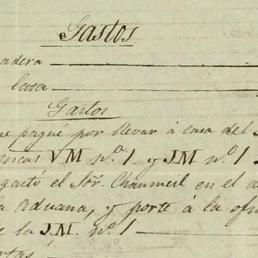 Gastos
adera
casa
Gastos
ue pague por llevar á casa del S
ricas V M nº. 1 y J M nº. 1
gastó el Sõr. Chaumeil en el a
la Aduana, y porte á la ofi
e la J.M. nº. 1